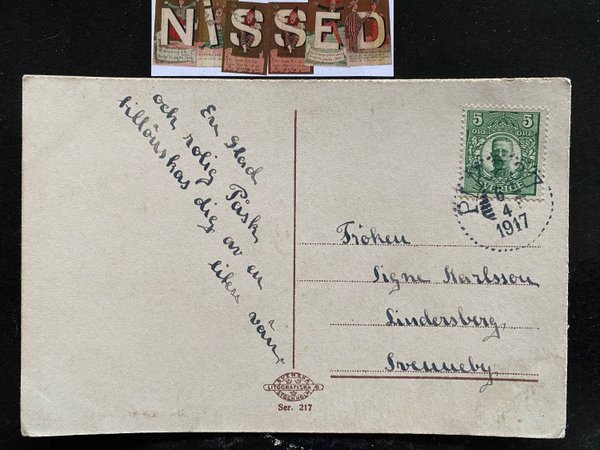 NISSED
En Glad
och rolig Påsk
tillönskas dig av en
liten vän.
5 5
ÖRE ÖRE
SVERIGE
4
1917
Fröken
Signe Karlsson
Lindersberg
Svenneby
SVENSKA
LITOGRAFISKA AB
STOCKHOLM
Ser. 217